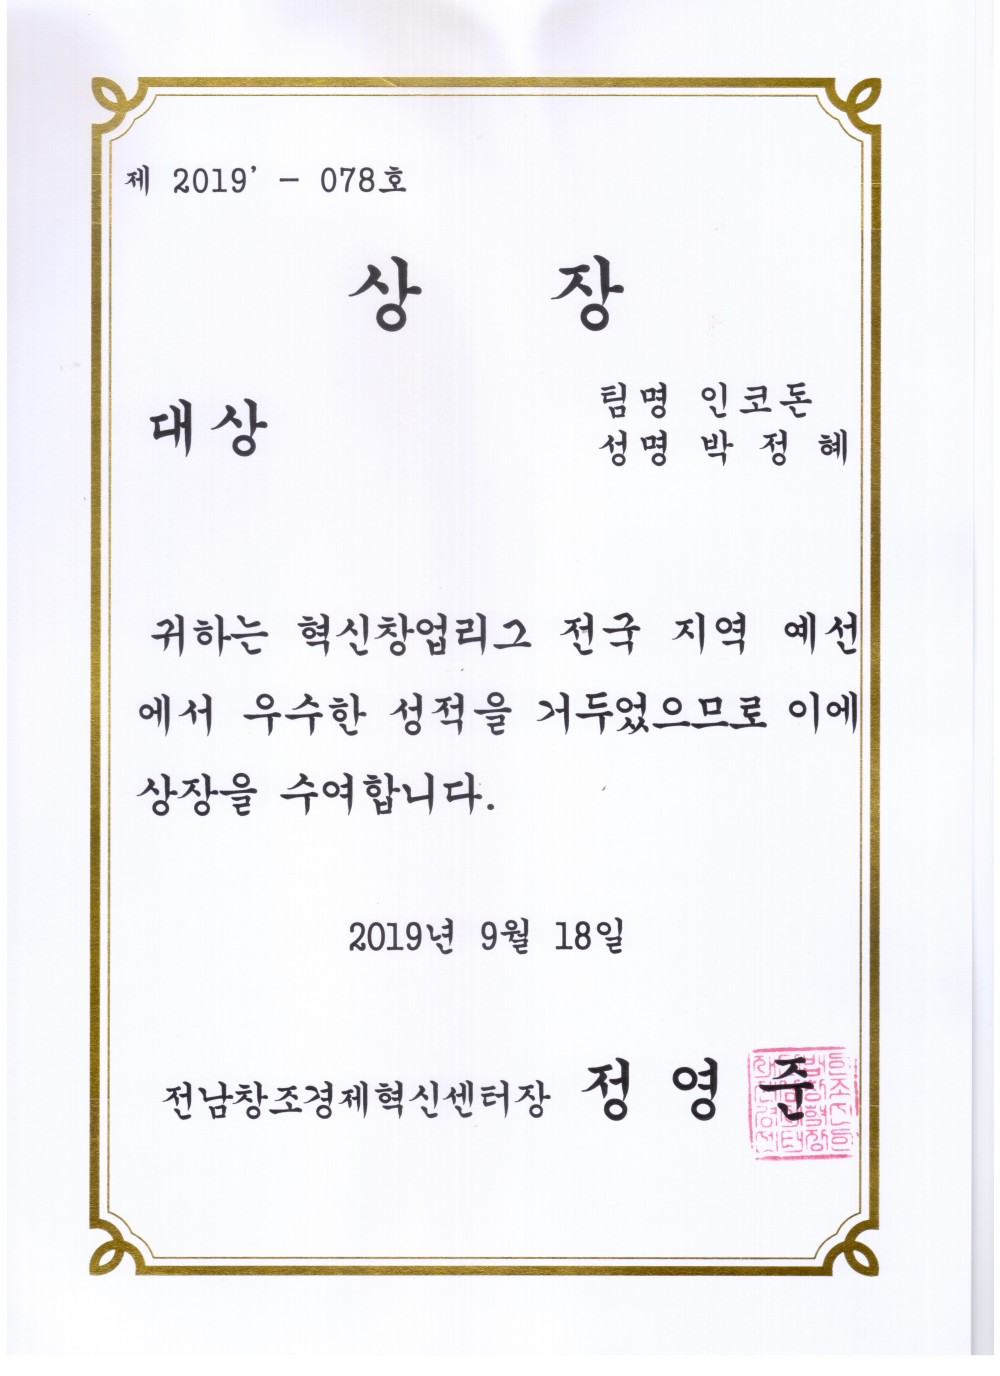 제 2019’ - 078호
상 장
대상
팀명 인코돈
성명 박 정 혜
귀하는 혁신창업리그 전국 지역 예선
에서 우수한 성적을 거두었으므로 이에
상장을 수여합니다.
2019년 9월 18일
전남창조경제혁신센터장 정 영 준